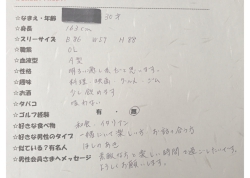 ☆なまえ・年齢 30才
☆身長 162cm
☆スリーサイズ B86 W59 H88
☆職業 OL
☆血液型 A型
☆性格 明るい
☆趣味 料理・映画
☆お酒 少し飲めます
☆タバコ 吸わない
☆ゴルフ経験 有・無
☆好きな食べ物 和食・イタリアン
☆好きな男性のタイプ 一緒にいて楽しい方
☆似ている？有名人 ほしのあき
☆男性会員さまへメッセージ 素敵な方と楽しい時間を過ごしたいです。
よろしくお願いします。